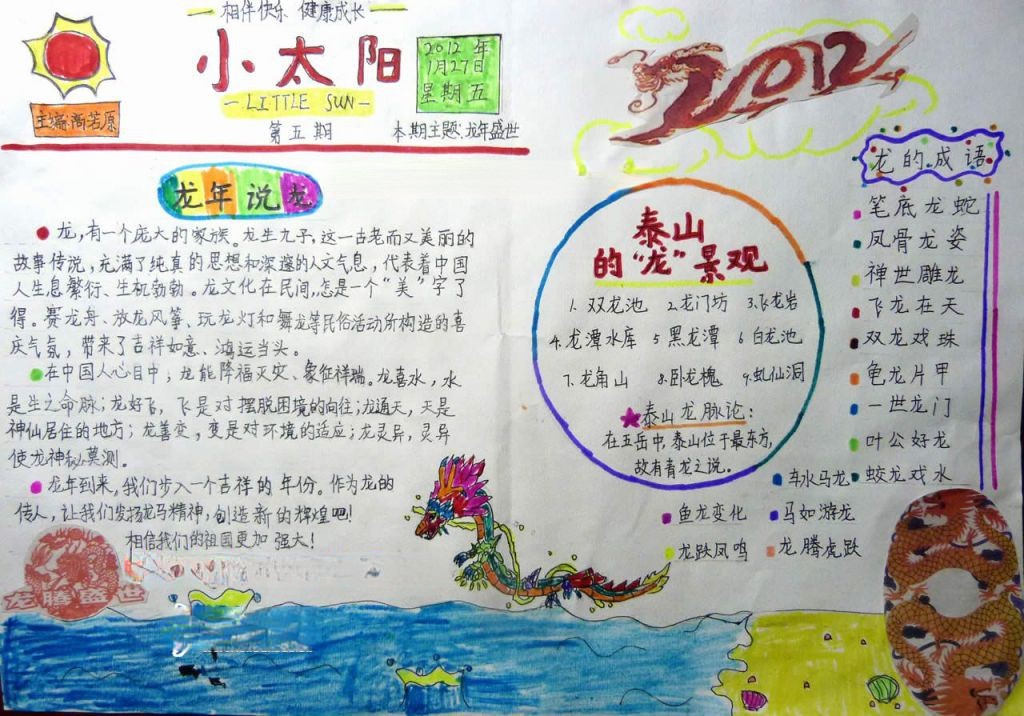 相伴快乐 健康成长
小太阳
LITTLE SUN
第五期
主编:高若原
2012年
1月27日
星期五
本期主题:龙年盛世
2012
龙年说龙
龙,有一个庞大的家族。龙生九子,这一古老而又美丽的
故事传说,充满了纯真的思想和深邃的人文气息,代表着中国
人生息繁衍、生机勃勃。龙文化在民间,怎是一个“美”字了
得。赛龙舟、放龙风筝、玩龙灯和舞龙等民俗活动所构造的喜
庆气氛,带来了吉祥如意、鸿运当头。
在中国人心目中,龙能降福灭灾、象征祥瑞。龙喜水,水
是生之命脉;龙好飞,飞是对摆脱困境的向往;龙通天,天是
神仙居住的地方;龙善变,变是对环境的适应;龙灵异,灵异
使龙神秘莫测。
龙年到来,我们步入一个吉祥的年份。作为龙的
传人,让我们发扬龙马精神,创造新的辉煌吧!
相信我们的祖国更加强大!
龙腾盛世
泰山
的“龙”景观
1. 双龙池 2.龙门坊 3.飞龙岩
4.龙潭水库 5 黑龙潭 6 白龙池
7.龙角山 8.卧龙槐 9.虬仙洞
泰山龙脉论:
在五岳中,泰山位于最东方,
故有青龙之说。
龙的成语
笔底龙蛇
凤骨龙姿
禅世雕龙
飞龙在天
双龙戏珠
龟龙片甲
一世龙门
叶公好龙
车水马龙 蛟龙戏水
鱼龙变化 马如游龙
龙跃凤鸣 龙腾虎跃